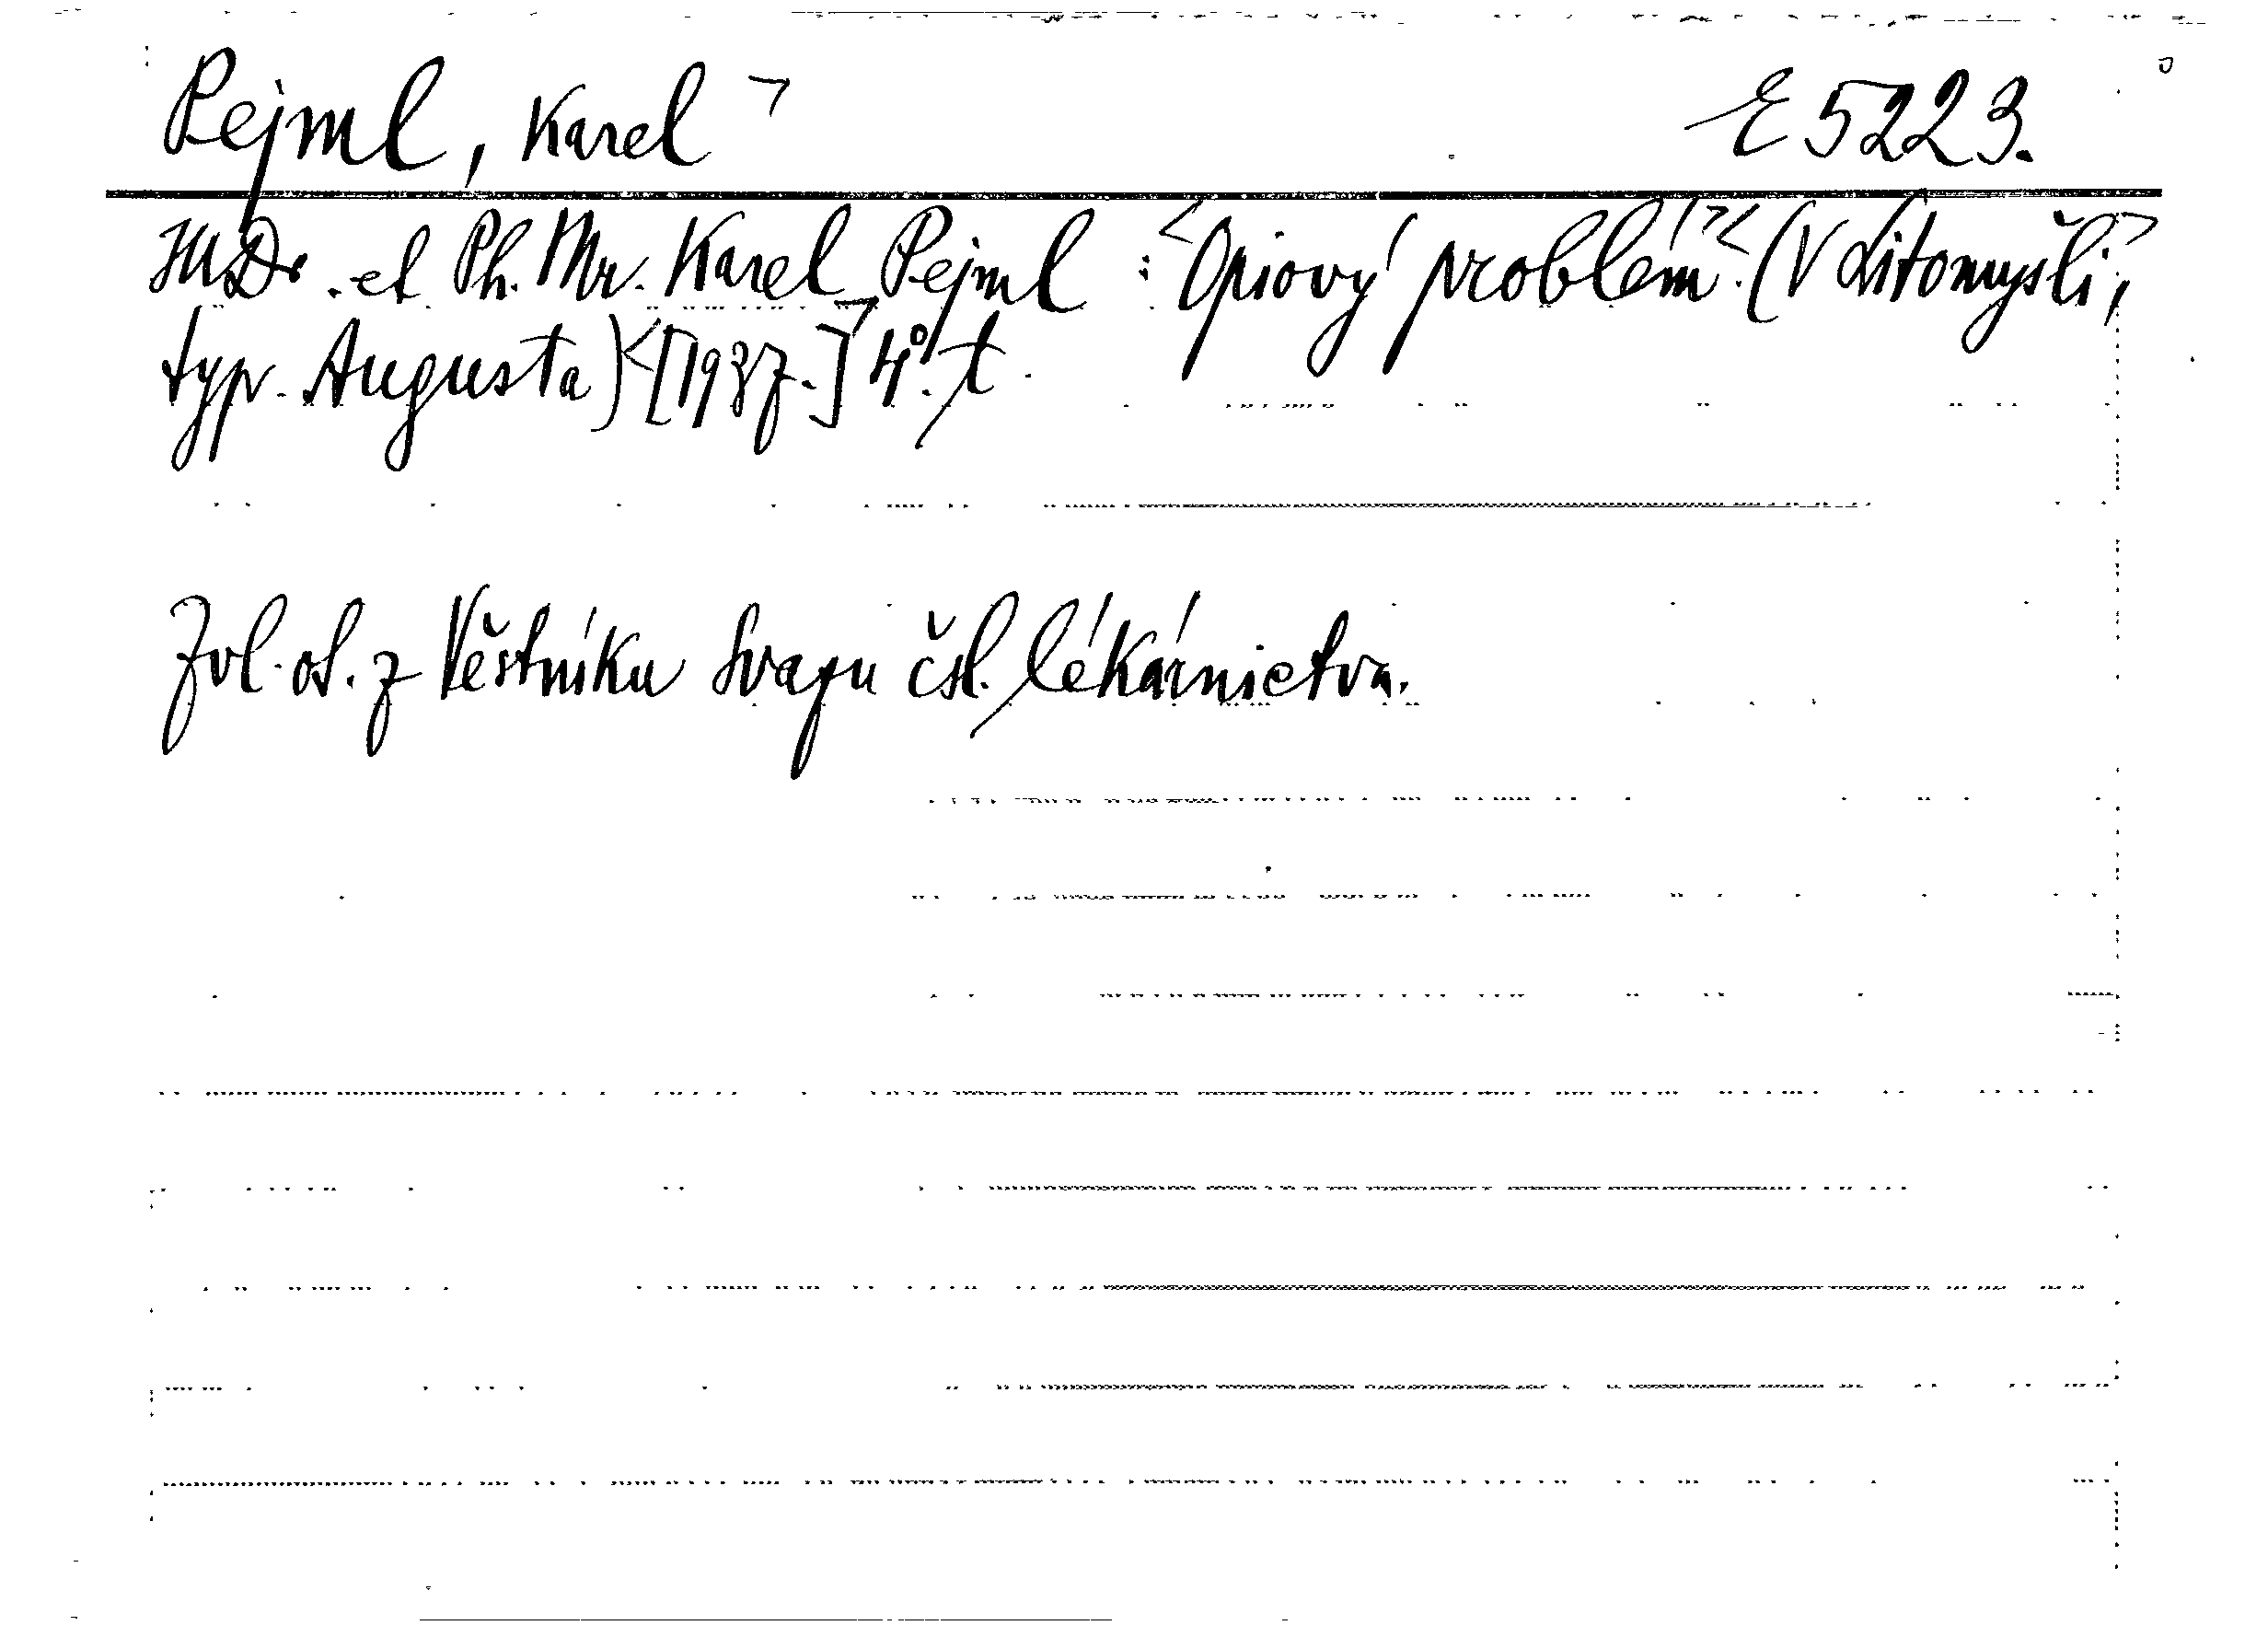 Pejml, Karel E 5223.
JUDr. et Ph. Mr. Karel Pejml : Opiový problém. (V Litomyšli,
typ. Augusta) [1937.] 4°. t.
Zvl. ot. z Věstníku Svazu čsl. lékárnictva.